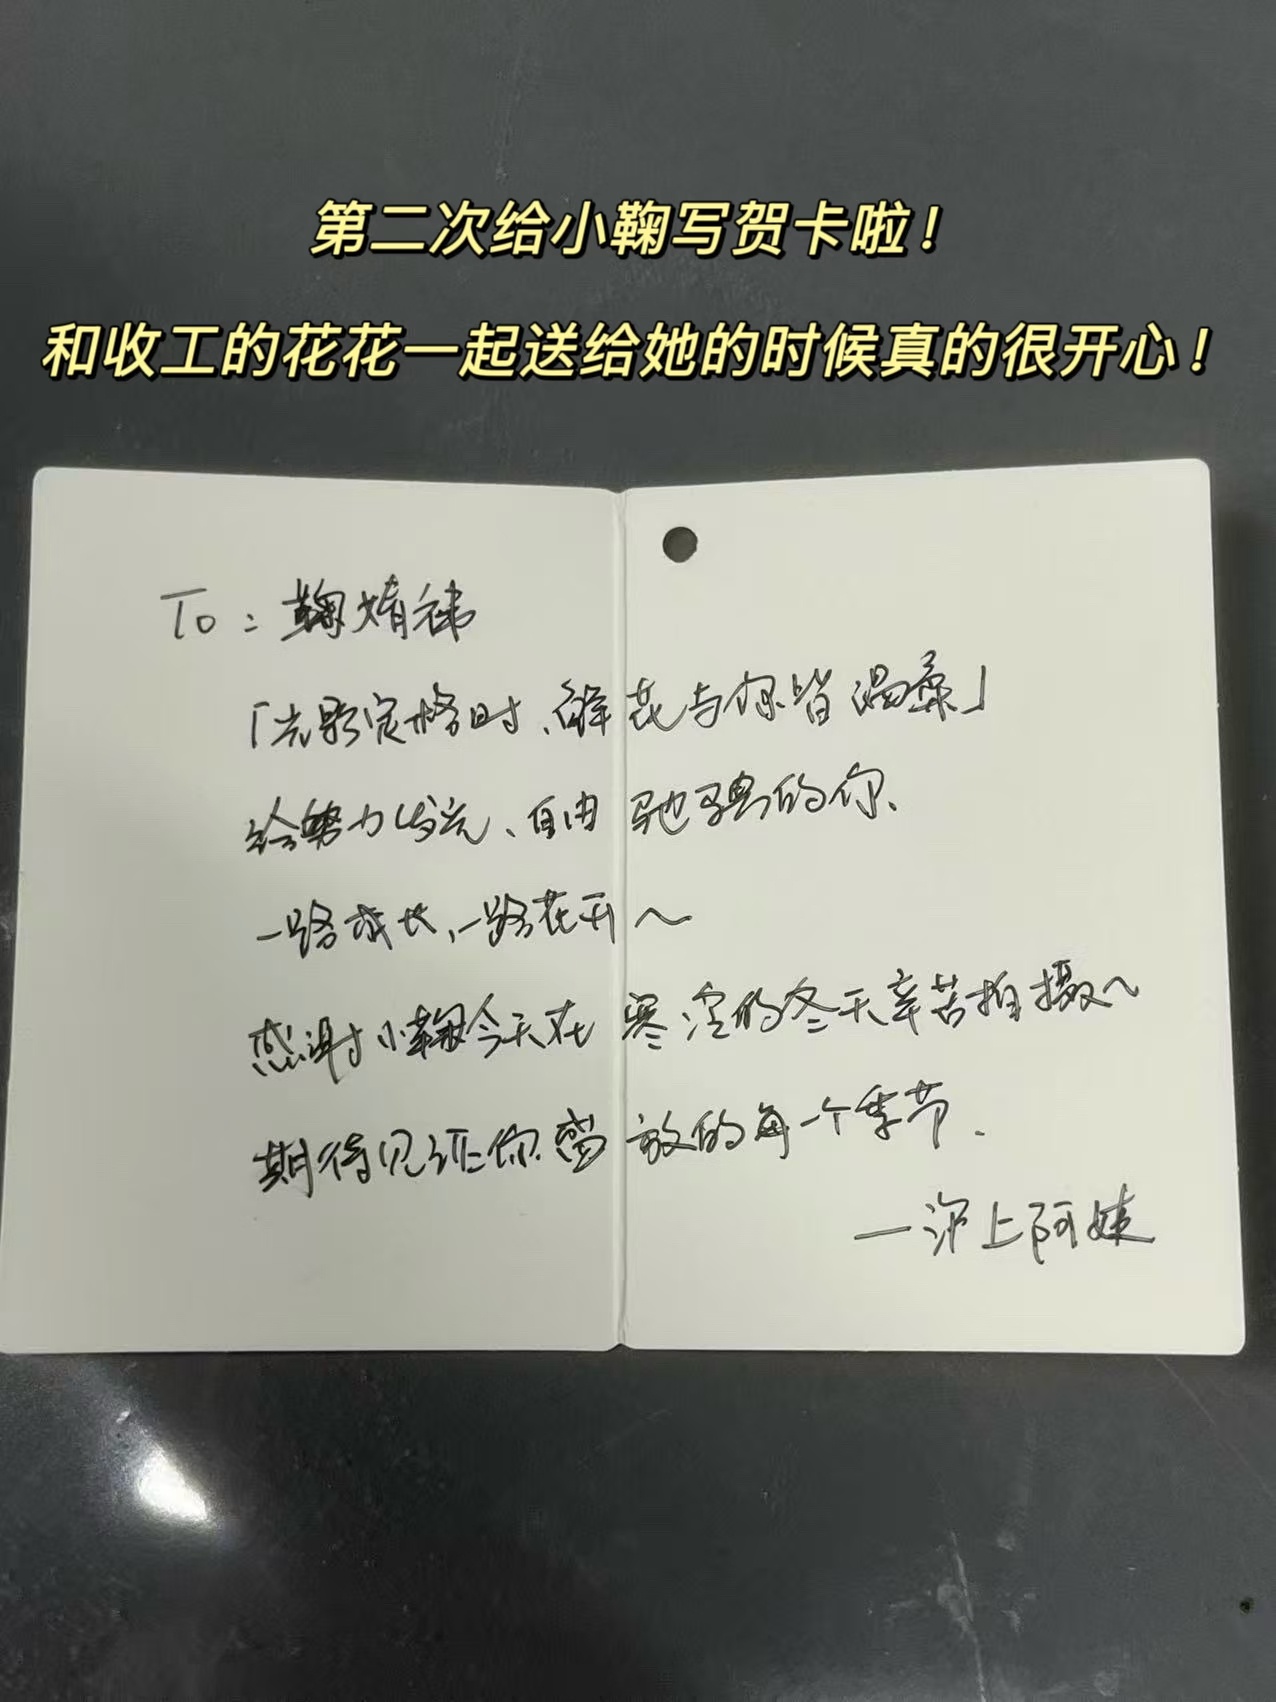 第二次给小鞠写贺卡啦！
和收工的花花一起送给她的时候真的很开心！
To：鞠婧祎
「光影定格时、鲜花与你皆温柔」
给努力发光、自由驰骋的你、
一路成长，一路花开～
感谢小鞠今天在寒冷的冬天辛苦拍摄～
期待见证你盛放的每一个季节.
—沪上阿姨